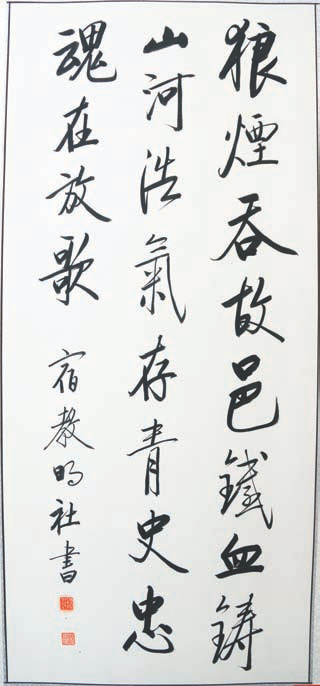 狼煙吞故邑鐵血鋳
山河浩氣存青史忠
魂在放歌
宿教明社書